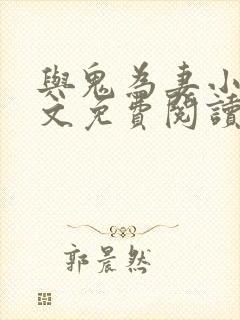 與鬼為妻小
文免費閱讀
郭晨然